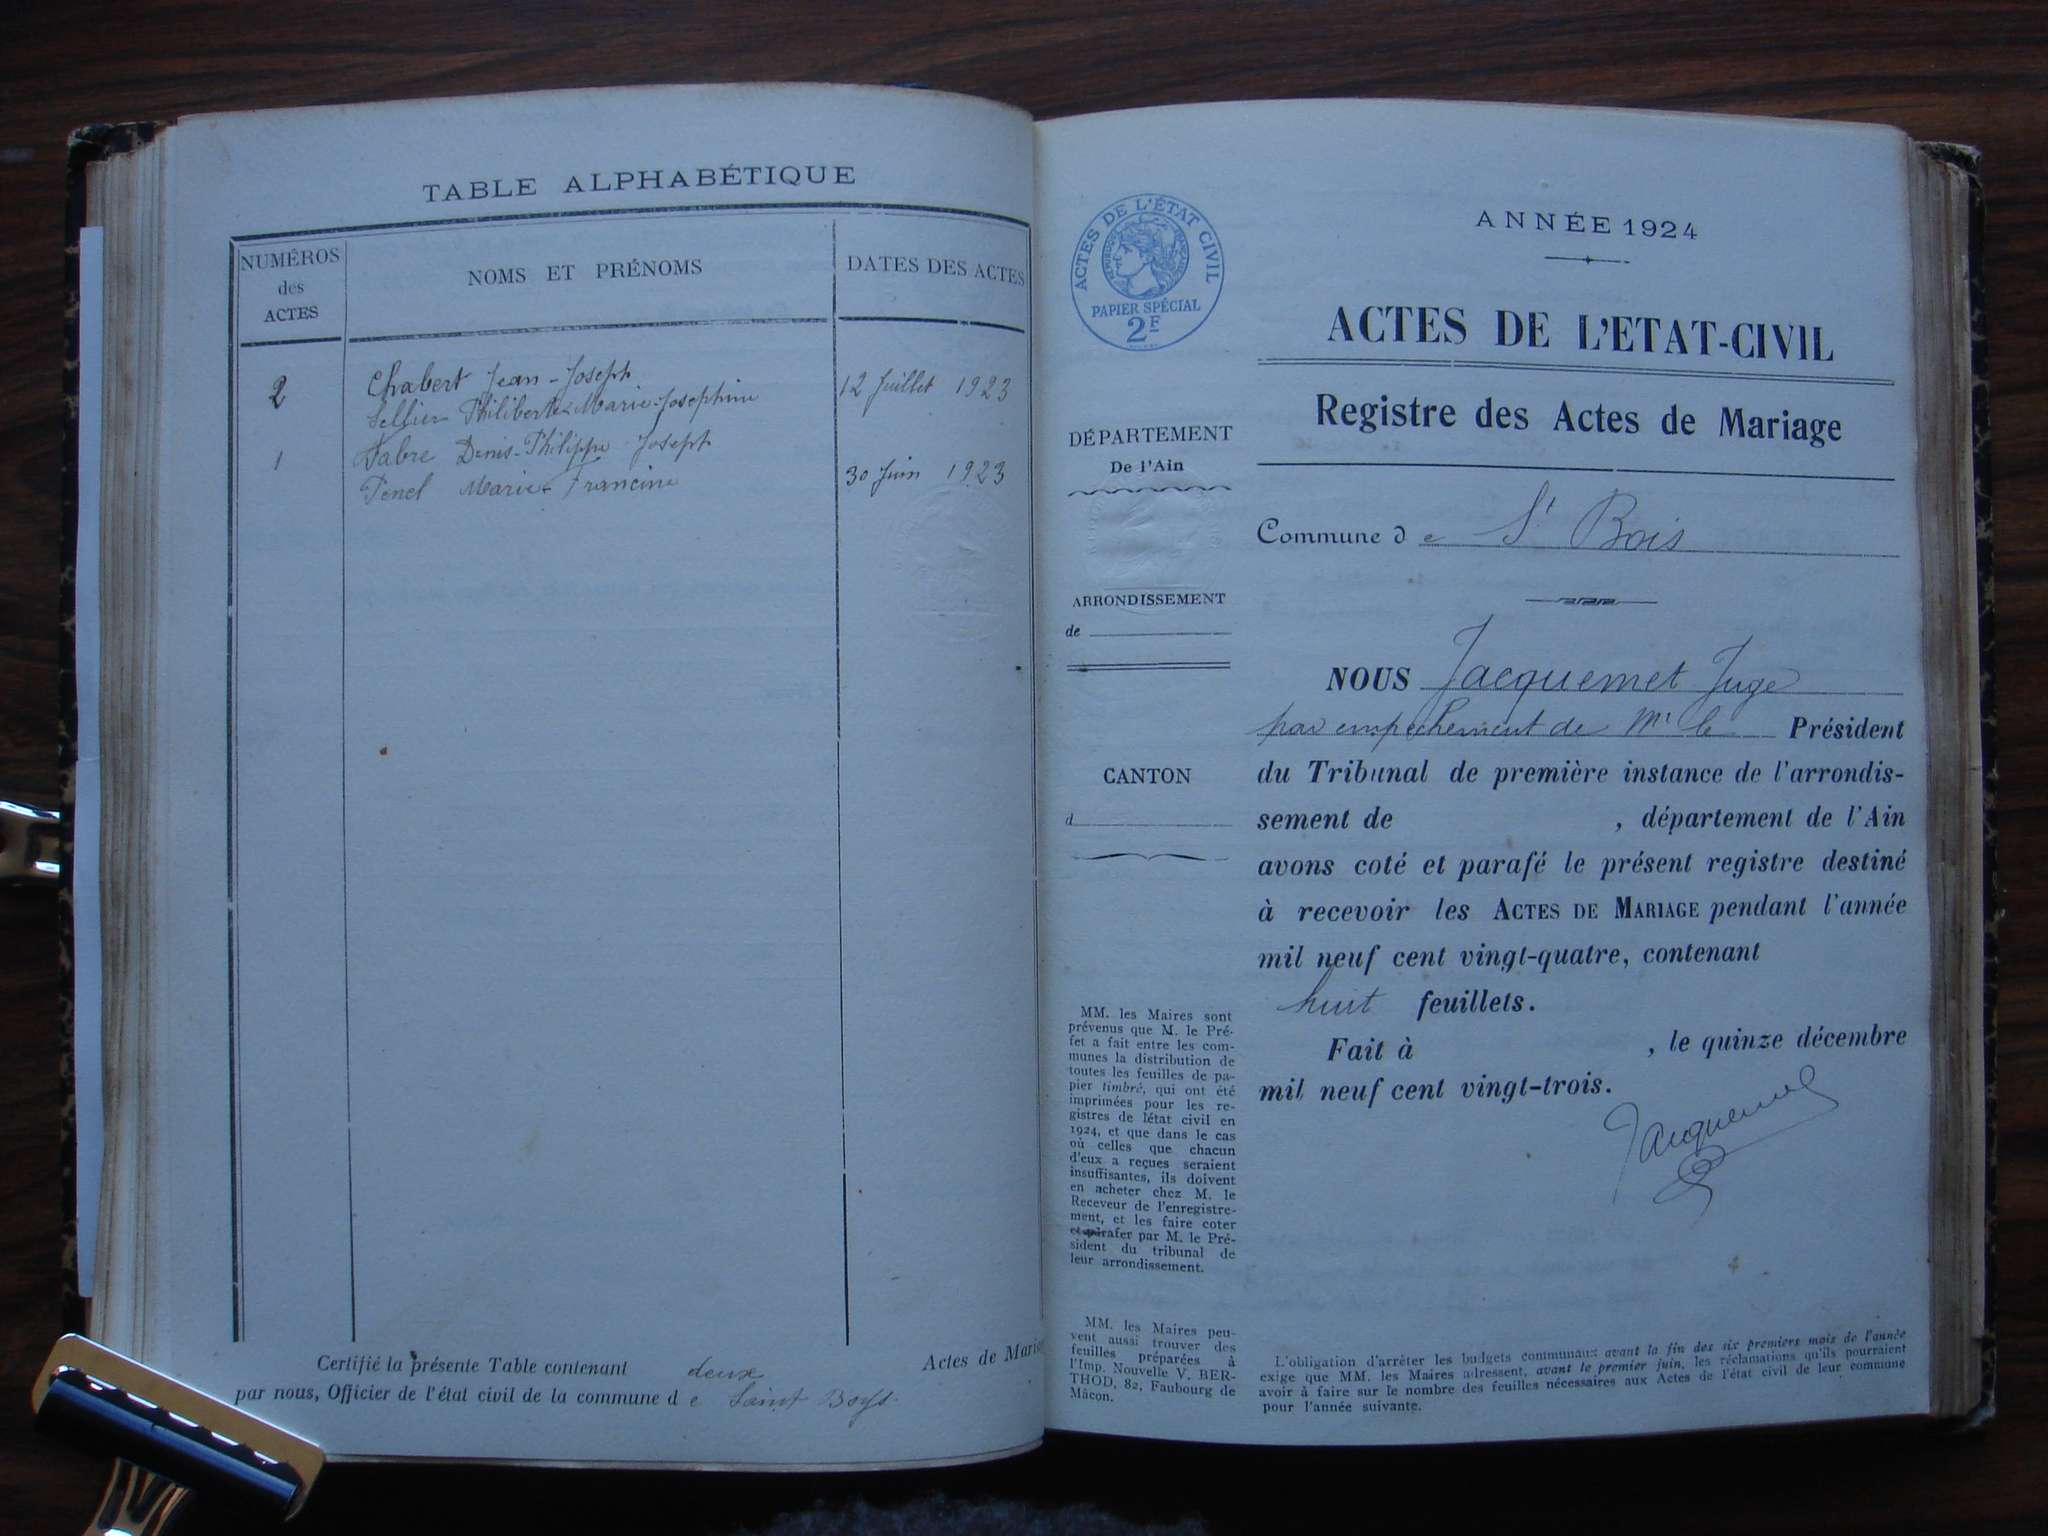 TABLE ALPHABÉTIQUE
NUMÉROS
des
ACTES
NOMS ET PRÉNOMS
DATES DES ACTES
2
Chabert Jean-Joseph
Sellier Philiberte-Marie-Josephine
12 Juillet 1923
1
Fabre Denis-Philippe Joseph
Penel Marie-Francine
30 Juin 1923
Certifié la présente Table contenant deux Actes de Maria
par nous, Officier de l'état civil de la commune de Saint Boys.
ACTES DE L'ÉTAT CIVIL
RÉPUBLIQUE FRANÇAISE
PAPIER SPÉCIAL
2F
DÉPARTEMENT
De l'Ain
ARRONDISSEMENT
de
CANTON
d
MM. les Maires sont
prévenus que M. le Pré-
fet a fait entre les com-
munes la distribution de
toutes les feuilles de pa-
pier timbré, qui ont été
imprimées pour les re-
gistres de létat civil en
1924, et que dans le cas
où celles que chacun
d'eux a reçues seraient
insuffisantes, ils doivent
en acheter chez M. le
Receveur de l'enregistre-
ment, et les faire coter
et parafer par M. le Pré-
sident du tribunal de
leur arrondissement.
MM. les Maires peu-
vent aussi trouver des
feuilles préparées à
l'Imp. Nouvelle V. BER-
THOD, 82, Faubourg de
Mâcon.
ANNÉE 1924
ACTES DE L'ETAT-CIVIL
Registre des Actes de Mariage
Commune de St Bois
NOUS Jacquemet Juge
par empechement de Mr le Président
du Tribunal de première instance de l'arrondis-
sement de , département de l'Ain
avons coté et parafé le présent registre destiné
à recevoir les ACTES DE MARIAGE pendant l'année
mil neuf cent vingt-quatre, contenant
huit feuillets.
Fait à , le quinze décembre
mil neuf cent vingt-trois.
Jacquemet
L'obligation d'arrêter les budgets communaux avant la fin des six premiers mois de l'année
exige que MM. les Maires adressent, avant le premier juin, les réclamations qu'ils pourraient
avoir à faire sur le nombre des feuilles nécessaires aux Actes de l'état civil de leur commune
pour l'année suivante.